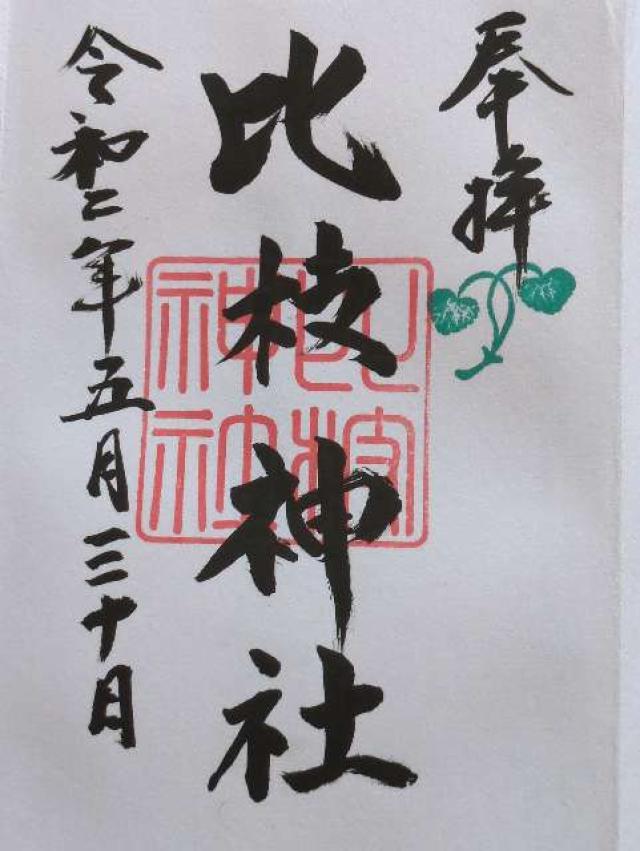 奉拝
比枝神社
令和二年五月三十日
比枝
神社